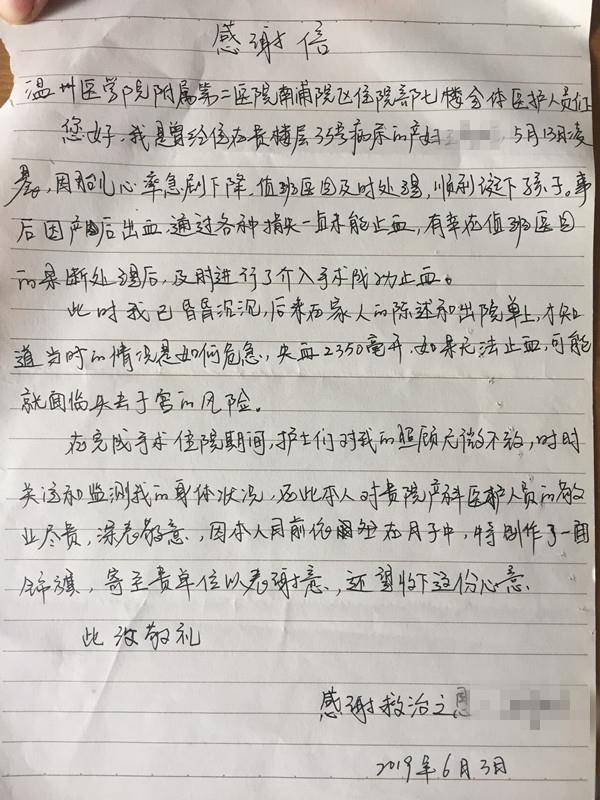 感谢信
温州医学院附属第二医院南浦院区住院部七楼全体医护人员们
您好,我是曾经住在贵楼层35号病床的产妇 5月13日凌
晨,因胎儿心率急剧下降,值班医因及时处理,顺利诞下孩子。事
后因产后出血,通过各种措失一直未能止血,有幸在值班医因
的果断处理后,及时进行了介入手术成功止血。
此时我已昏昏沉沉,后来在家人的陈述和出院单上,才知
道当时的情况是如何危急,失血2350毫升,如果无法止血,可能
就面临失去子宫的风险。
在完成手术住院期间,护士们对我的照顾无微不致,时时
关注和监测我的身体状况,在此本人对贵院产科医护人员的敬
业尽责,深表敬意,因本人目前依旧坐在月子中,特制作了一面
锦旗,寄至贵单位以表谢意,还望收下这份心意
此致敬礼
感谢救治之恩
2019年6月3日